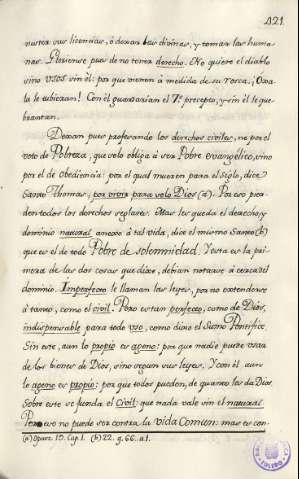 421
nuster sus licencias, ó dexan las divinas, y toman las huma-
nas. Pierense pues de no tener derecho. No quiere el diablo
sino usos sin él: por que vienen á medida de su rosca. ¡Oxa
la le tubieran! Con él guardarian el 7.º precepto, y sin él le que-
brantan.
Dexan pues profesando los derechos civiles, no por el
voto de Pobreza, que solo obliga á ser Pobre evangélico, sino
por el de Obediencia: por el qual mueren para el siglo, dice
Santo Thomas, por vivir para solo Dios (a). Por eso pier-
den todos los derechos reglares. Mas les queda el derecho y
dominio natural anexo á tal vida, dice el mismo Santo (b)
que es el de todo Pobre de solemnidad. Y esta es la pri-
mera de las dos cosas que dixe, debian notarse á cerca del
dominio. Imperfecto le llaman las leyes, por no extenderse
á tanto, como el civil. Pero es tan perfecto, como de Dios,
indispensable para todo uso, como dixo el Sumo Pontifice
Sin este, aun lo propio es ageno: por que nadie puede usar
de los bienes de Dios, sino segun sus leyes. Y con él aun
lo ageno es propio: por que todos pueden, de quanto les da Dios
Sobre este se funda el Civil: que nada vale sin el natural
Pero eso no puede ser contra la vida Comun: mas es con-
(a) Opusc. 19. Cap. 1. (b) 22. q. 66. a. 1.
TOLEDO